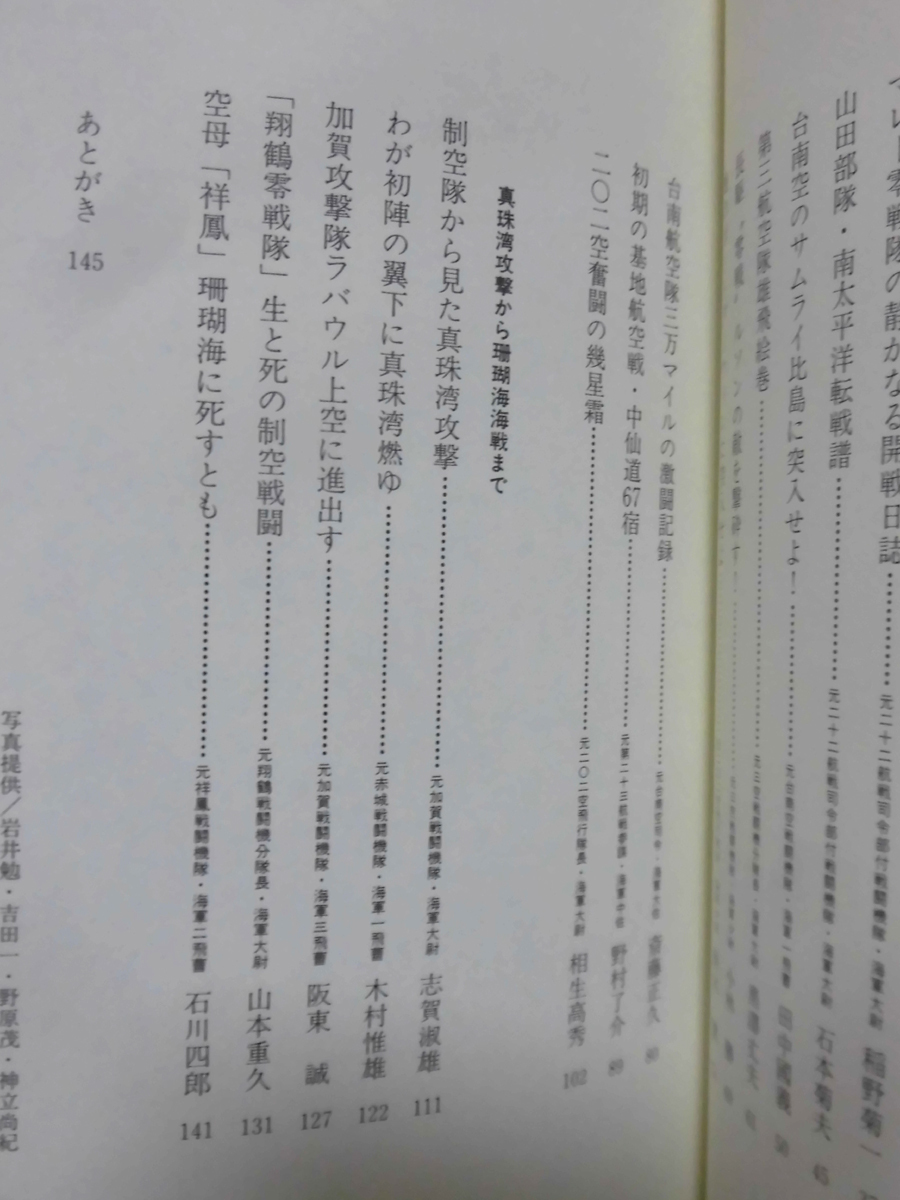 零戦隊の静かなる開戦日誌……元二十二航戦司令部付戦闘機隊・海軍大尉 稲野菊一
山田部隊・南太平洋転戦譜……元二十二航戦司令部付戦闘機隊・海軍大尉 石本菊夫 45
台南空のサムライ比島に突入せよ！……元台南空戦闘機隊・海軍一飛曹 田中國義 50
第三航空隊雄飛絵巻
台南航空隊三万マイルの激闘記録……元台南空司令・海軍大佐 斎藤正久 80
初期の基地航空戦・中仙道67宿……元第二十三航戦参謀・海軍中佐 野村了介 89
二〇二空奮闘の幾星霜……元二〇二空飛行隊長・海軍大尉 相生高秀 102
真珠湾攻撃から珊瑚海海戦まで
制空隊から見た真珠湾攻撃……元加賀戦闘機隊・海軍大尉 志賀淑雄 111
わが初陣の翼下に真珠湾燃ゆ……元赤城戦闘機隊・海軍一飛曹 木村惟雄 122
加賀攻撃隊ラバウル上空に進出す……元加賀戦闘機隊・海軍三飛曹 阪東 誠 127
「翔鶴零戦隊」生と死の制空戦闘……元翔鶴戦闘機分隊長・海軍大尉 山本重久 131
空母「祥鳳」珊瑚海に死すとも……元祥鳳戦闘機隊・海軍二飛曹 石川四郎 141
あとがき 145
写真提供／岩井勉・吉田一・野原茂・神立尚紀